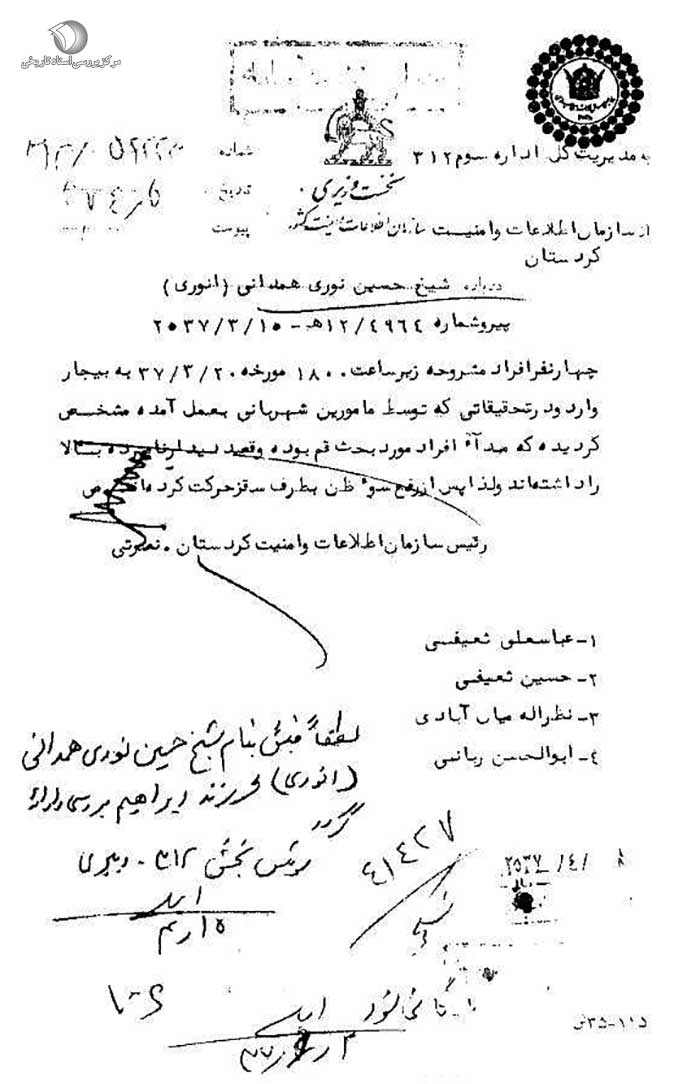 مرکز بررسی اسناد تاریخی
به مدیریت کل اداره سوم ۳۱۲
شماره
نخست وزیری
تاریخ
از سازمان اطلاعات و امنیت سازمان اطلاعات و امنیت کشور
پیوست
کردستان
درباره شیخ حسین نوری همدانی (انوری)
پیرو شماره ۱۲/٤۹٦٤هـ - ۲۰۳۷/۳/۱۰
چهار نفر افراد مشروحه زیر ساعت ۱۸۰۰ مورخه ۳۷/۳/۲۰ به بیجار
وارد و در تحقیقاتی که توسط مامورین شهربانی بعمل آمده مشخص
گردیده که مبدأ افراد مورد بحث قم بوده و قصد دیدار نامبرده بالا
را داشته‌اند و لذا پس از رفع سوء ظن بطرف سقز حرکت کرده‌اند
رئیس سازمان اطلاعات و امنیت کردستان . نصرتی
۱- عباسعلی ثعیفی
۲- حسین ثعیفی
۳- نظراله میان آبادی
٤- ابوالحسن
لطفاً فیش بنام شیخ حسین نوری همدانی
(انوری) فرزند ابراهیم بررسی و ارائه
گردد
رئیس بخش ۳۱۲ -
٤۱٤۲۷
۲۵۳۷/٤/
بایگانی شود
۳۵-۱۱۵